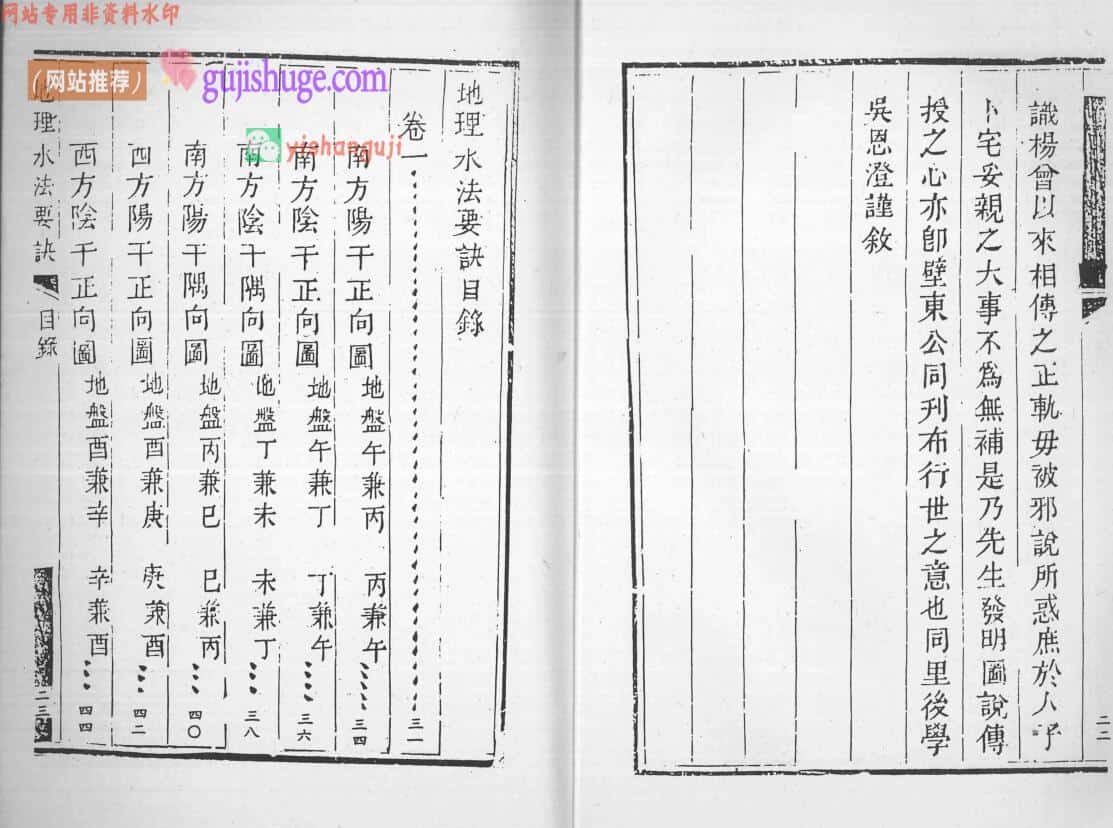 网站专用非资料水印
(网站推荐)
gujishuge.com
yishanguji
識楊曾以來相傳之正軌毋被邪說所惑庶於人子
卜宅妥親之大事不為無補是乃先生發明圖說傳
授之心亦卽壁東公同刊布行世之意也同里後學
吳恩澄謹敘
二二
地理水法要訣目錄
卷一 三一
南方陽干正向圖 地盤午兼丙 丙兼午 三四
南方陰干正向圖 地盤午兼丁 丁兼午 三六
南方陰干隅向圖 地盤丁兼未 未兼丁 三八
南方陽干隅向圖 地盤丙兼巳 巳兼丙 四〇
西方陽干正向圖 地盤酉兼庚 庚兼酉 四二
西方陰干正向圖 地盤酉兼辛 辛兼酉 四四
地理水法要訣 目錄
二三